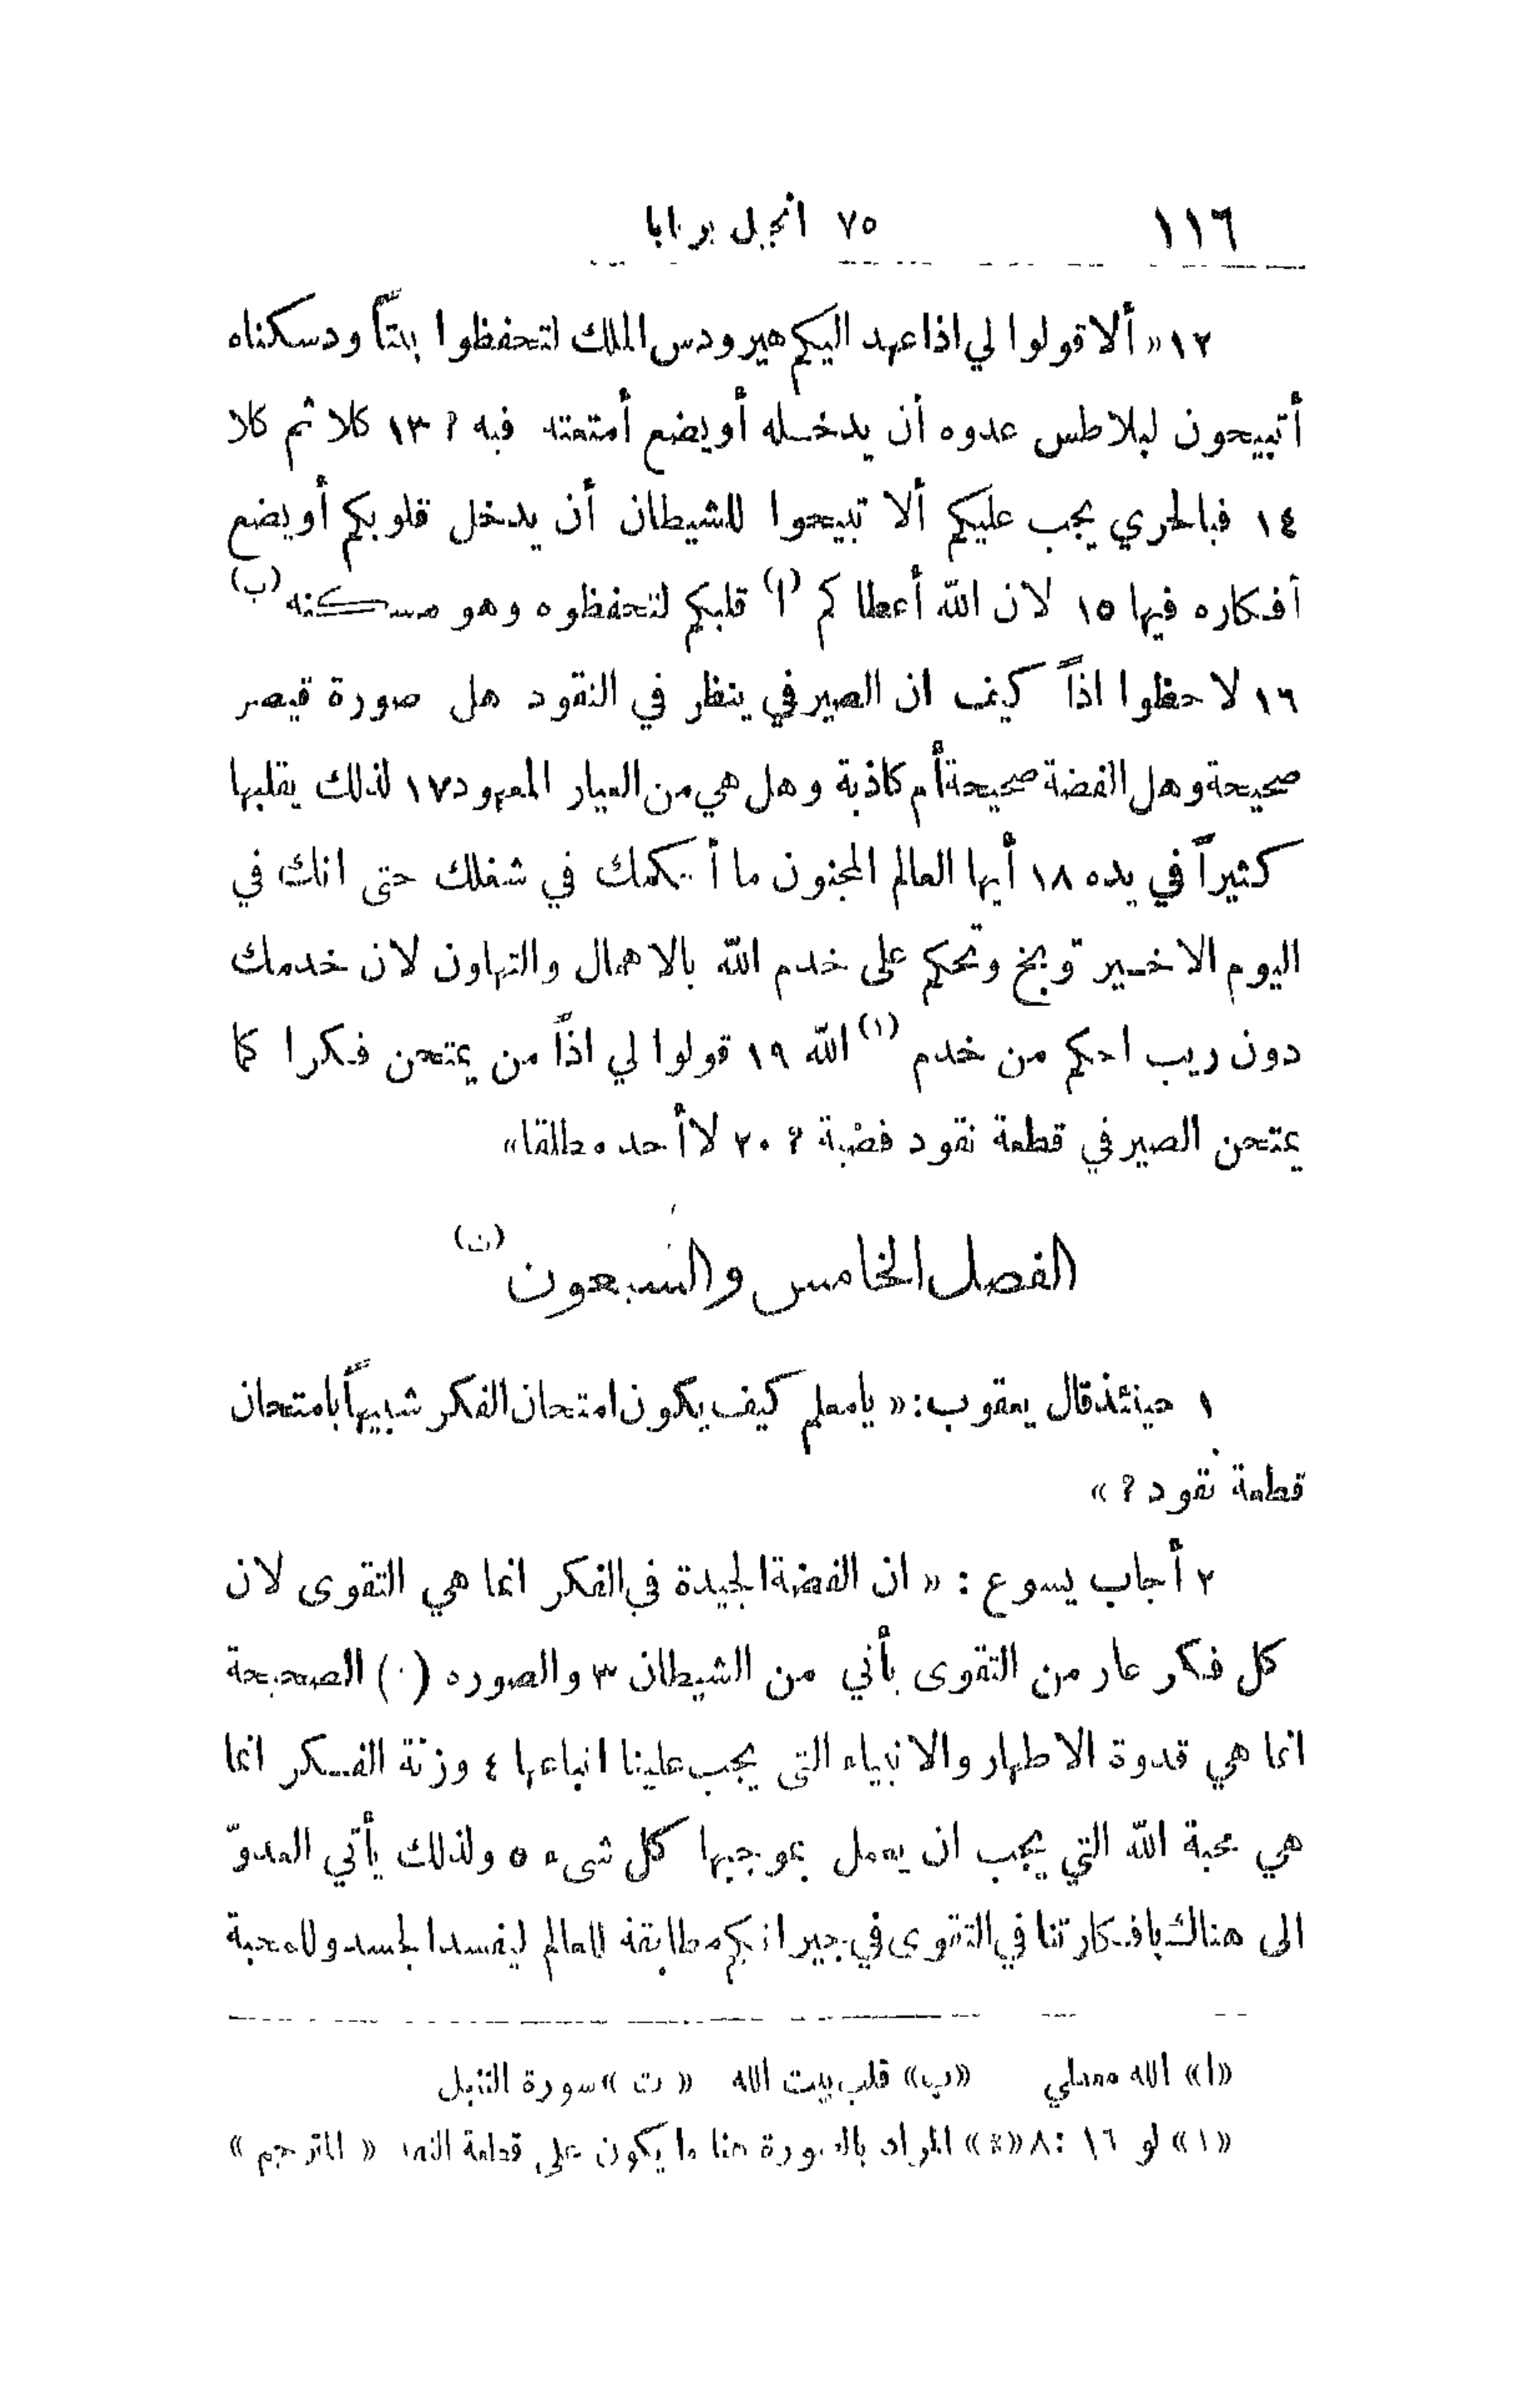 ١١٦ ٧٥ انجيل برنابا
١٢ « ألا قولوا لي اذا عهد اليكم هيرودس الملك لتحفظوا بيتاً ود سكناه
أتبيحون لبلاطس عدوه أن يدخله أو يضع أمتعته فيه ؟ ١٣ كلا ثم كلا
١٤ فبالحري يجب عليكم ألا تبيحوا للشيطان أن يدخل قلوبكم أو يضع
أفكاره فيها ١٥ لان الله أعطاكم (ا) قلبكم لتحفظوه وهو مسكنه (ب)
١٦ لاحظوا اذاً كيف ان الصيرفي ينظر في النقود هل صورة قيصر
صحيحة وهل الفضة صحيحة أم كاذبة وهل هي من العيار المعهود ١٧ لذلك يقلبها
كثيراً في يده ١٨ أيها العالم المجنون ما أحكمك في شغلك حتى انك في
اليوم الاخير توبخ وتحكم على خدم الله بالاهمال والتهاون لان خدمك
دون ريب احكم من خدم (١) الله ١٩ قولوا لي اذاً من يمتحن فكرا كما
يمتحن الصيرفي قطعة نقود فضية ؟ ٢٠ لا أحد مطلقا »
الفصل الخامس والسبعون (ت)
١ حينئذ قال يعقوب : « يا معلم كيف يكون امتحان الفكر شبيهاً بامتحان
قطعة نقود ؟ »
٢ أجاب يسوع : « ان الفضة الجيدة في الفكر انما هي التقوى لان
كل فكر عار من التقوى يأتي من الشيطان ٣ والصوره (٠) الصحيحة
انما هي قدوة الاطهار والانبياء التي يجب علينا اتباعها ٤ وزنة الفكر انما
هي محبة الله التي يجب ان يعمل بموجبها كل شىء ٥ ولذلك يأتي العدوّ
الى هناك بافكار تنافي التقوى في جيرانكم مطابقة للعالم ليفسد الجسد وللمحبة
«ا» الله معطي «ب» قلب بيت الله « ت » سورة
«١» لو ١٦ : ٨ «*» المراد بالصورة هنا ما يكون على قطعة النقد « المترجم »